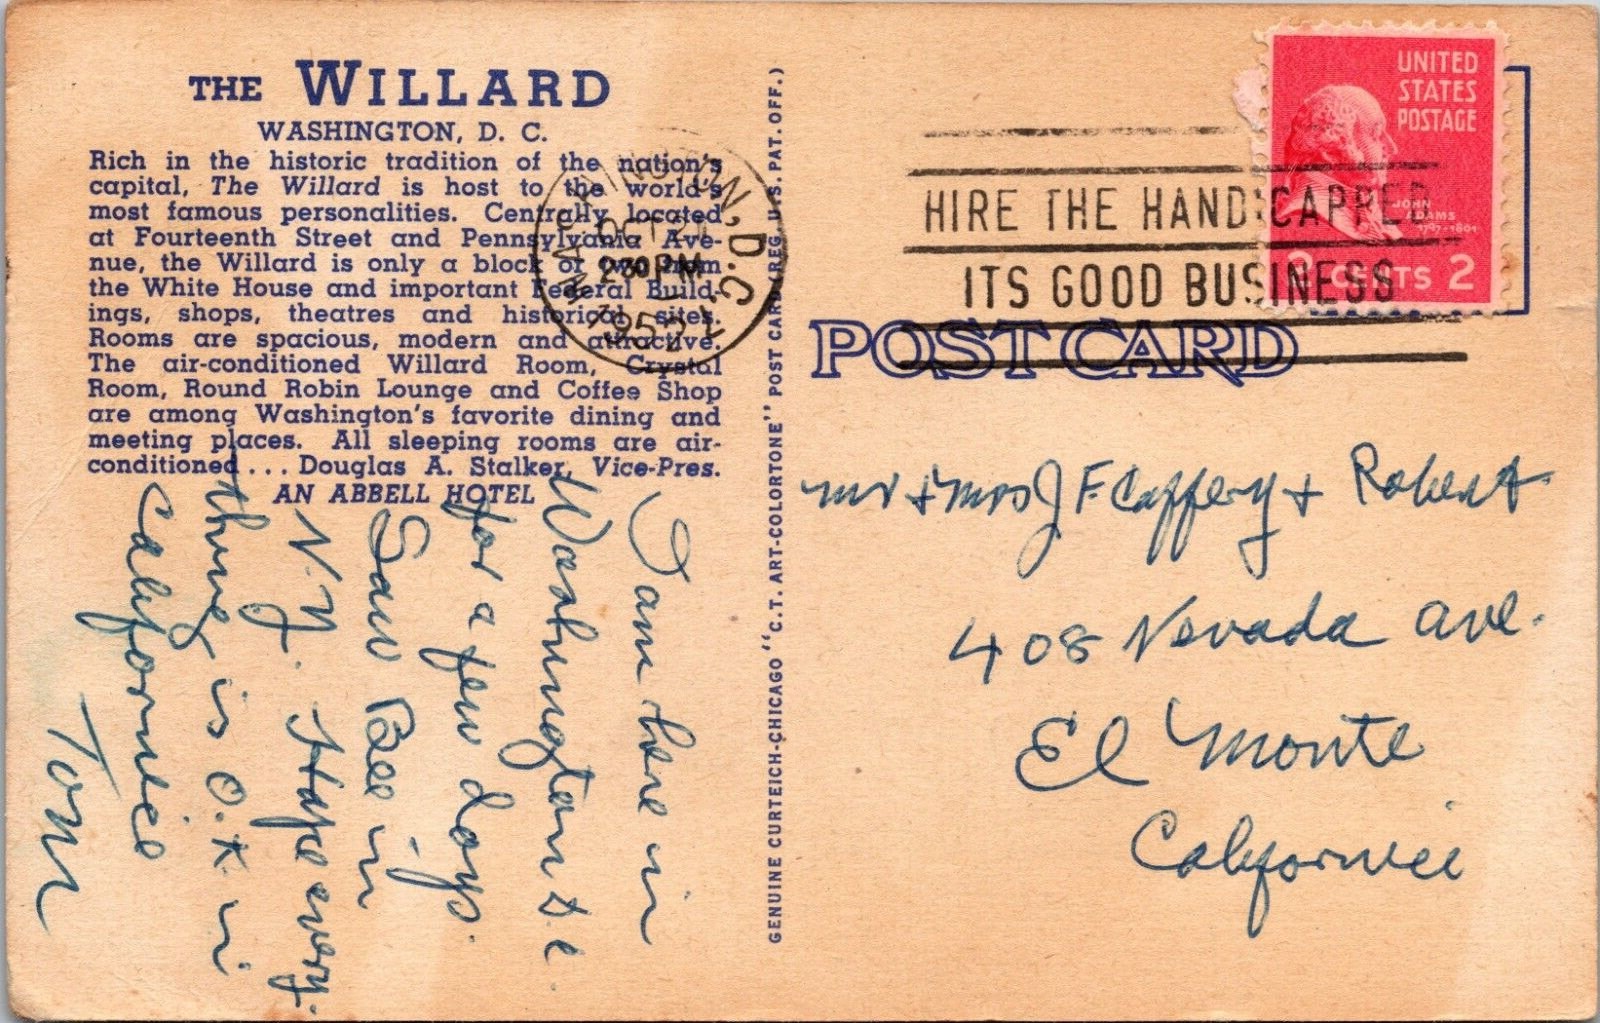 THE WILLARD
WASHINGTON, D. C.
Rich in the historic tradition of the nation's
capital, The Willard is host to the world's
most famous personalities. Centrally located
at Fourteenth Street and Pennsylvania Ave-
nue, the Willard is only a block or two from
the White House and important Federal Build-
ings, shops, theatres and historical sites.
Rooms are spacious, modern and attractive.
The air-conditioned Willard Room, Crystal
Room, Round Robin Lounge and Coffee Shop
are among Washington's favorite dining and
meeting places. All sleeping rooms are air-
conditioned ... Douglas A. Stalker, Vice-Pres.
AN ABBELL HOTEL
I am here in
Washington D.C.
for a few days.
Saw Bee in
N.Y. Hope every-
thing is O.K. in
California
Tom
GENUINE CURTEICH-CHICAGO "C.T. ART-COLORTONE" POST CARD (REG. U.S. PAT. OFF.)
WASHINGTON, D.C.
OCT 21
230 PM
1952
HIRE THE HANDICAPPED
ITS GOOD BUSINESS
UNITED
STATES
POSTAGE
JOHN
ADAMS
1797-1801
2 CENTS 2
POST CARD
Mr + Mrs J F. Caffery + Robert
408 Nevada Ave.
El Monte
California